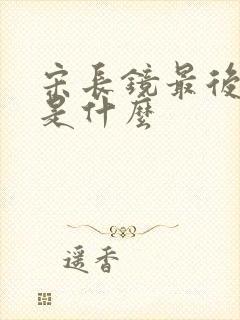 宋長鏡最後
是什麼
遥香